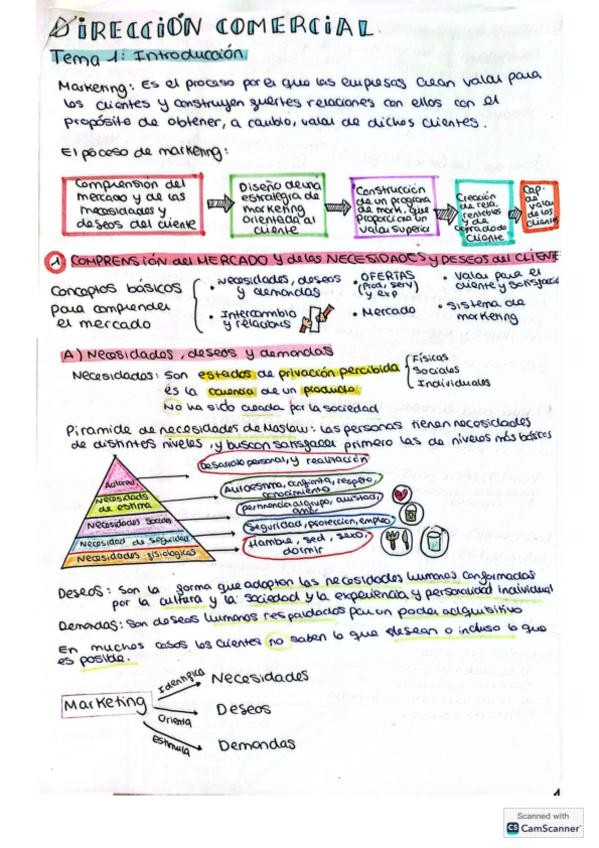 DIRECCIÓN COMERCIAL
Tema 1: Introducción
Marketing: Es el proceso por el que las empresas crean valor para
los clientes y construyen fuertes relaciones con ellos con el
propósito de obtener, a cambio, valor de dichos clientes.
El poceso de marketing:
Comprensión del
mercado y de las
necesidades y
deseos del cliente
Diseño de una
estrategia de
marketing
orientada al
cliente
Construcción
de un programa
de mark. que
proporciona un
valor superior
Creación
de rela.
rentables
y de
cliente
Cap.
de valor
de los
clientes
1 COMPRENSIÓN del MERCADO y de las NECESIDADES y DESEOS del CLIENTE
Conceptos básicos
para comprender
el mercado
• Necesidades, deseos
y demandas
• Intercambio
y relacions
• OFERTAS
(Prod, serv)
y exp
• Mercado
• Valor para el
cliente y satisfacc
• Sistema de
marketing
A) Necesidades, deseos y demandas
Necesidades: Son estados de privación percibida
Físicas
Sociales
Individuales
és la carencia de un producto
No ha sido creada por la sociedad
Piramide de necesidades de Maslow: las personas tienen necesidades
de distintos niveles, y buscan satisfacer primero las de niveles más básicos
Autorrea.
Necesidades
de estima
Necesidades sociales
Necesidad de seguridad
Necesidades fisiologicas
Desarrollo personal, y realización
Autoestima, confianza, respeto,
conocimiento
pertenencia al grupo, amistad,
amor
Seguridad, protección, empleo
Hambre, sed, sexo,
dormir
Deseos: Son la forma que adoptan las necesidades humanas conformadas
por la cultura y la sociedad y la experiencia y personalidad individual
Demandas: Son deseos humanos respaldados por un poder adquisitivo
En muchos casos los clientes no saben lo que desean o incluso lo que
es posible.
Marketing
Identifica
Necesidades
Orienta
Deseos
Estimula
Demandas
1
Scanned with
CS CamScanner